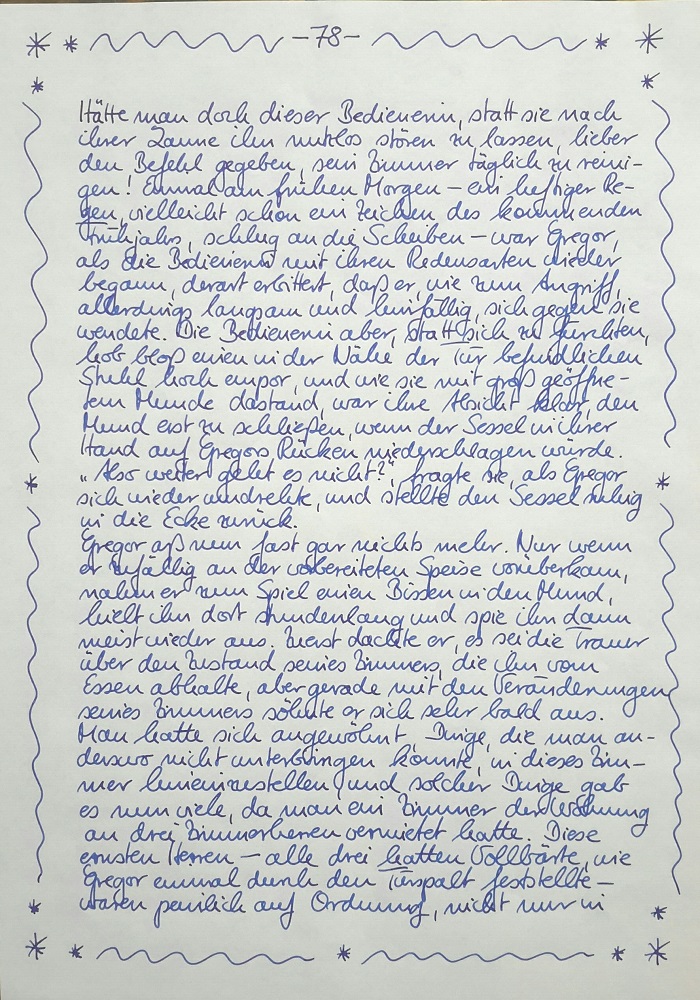 -78-
Hätte man doch dieser Bedienerin, statt sie nach
ihrer Laune ihn nutzlos stören zu lassen, lieber
den Befehl gegeben, sein Zimmer täglich zu reini-
gen! Einmal am frühen Morgen – ein heftiger Re-
gen, vielleicht schon ein Zeichen des kommenden
Frühjahrs, schlug an die Scheiben – war Gregor,
als die Bedienerin mit ihren Redensarten wieder
begann, derart erbittert, daß er, wie zum Angriff,
allerdings langsam und hinfällig, sich gegen sie
wendete. Die Bedienerin aber, statt sich zu fürchten,
hob bloß einen in der Nähe der Tür befindlichen
Stuhl hoch empor, und wie sie mit groß geöffne-
tem Munde dastand, war ihre Absicht klar, den
Mund erst zu schließen, wenn der Sessel in ihrer
Hand auf Gregors Rücken niederschlagen würde.
„Also weiter geht es nicht?“, fragte sie, als Gregor
sich wieder umdrehte, und stellte den Sessel ruhig
in die Ecke zurück.
Gregor aß nun fast gar nichts mehr. Nur wenn
er zufällig an der vorbereiteten Speise vorüberkam,
nahm er zum Spiel einen Bissen in den Mund,
hielt ihn dort stundenlang und spie ihn dann
meist wieder aus. Zuerst dachte er, es sei die Trauer
über den Zustand seines Zimmers, die ihn vom
Essen abhalte, aber gerade mit den Veränderungen
seines Zimmers söhnte er sich sehr bald aus.
Man hatte sich angewöhnt, Dinge, die man an-
derswo nicht unterbringen konnte, in dieses Zim-
mer hineinzustellen, und solcher Dinge gab
es nun viele, da man ein Zimmer der Wohnung
an drei Zimmerherren vermietet hatte. Diese
ernsten Herren – alle drei hatten Vollbärte, wie
Gregor einmal durch den Türspalt feststellte –
waren peinlich auf Ordnung, nicht nur in